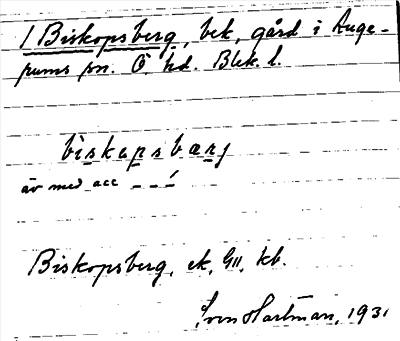 1 Biskopsberg, bek, gård i Auge-
rums sn. Ö. hd. Blek. l.
biskəpsbærj
äv med acc _ _ ´
Biskopsberg, ek, GII, kb.
Sven Hartman, 1931